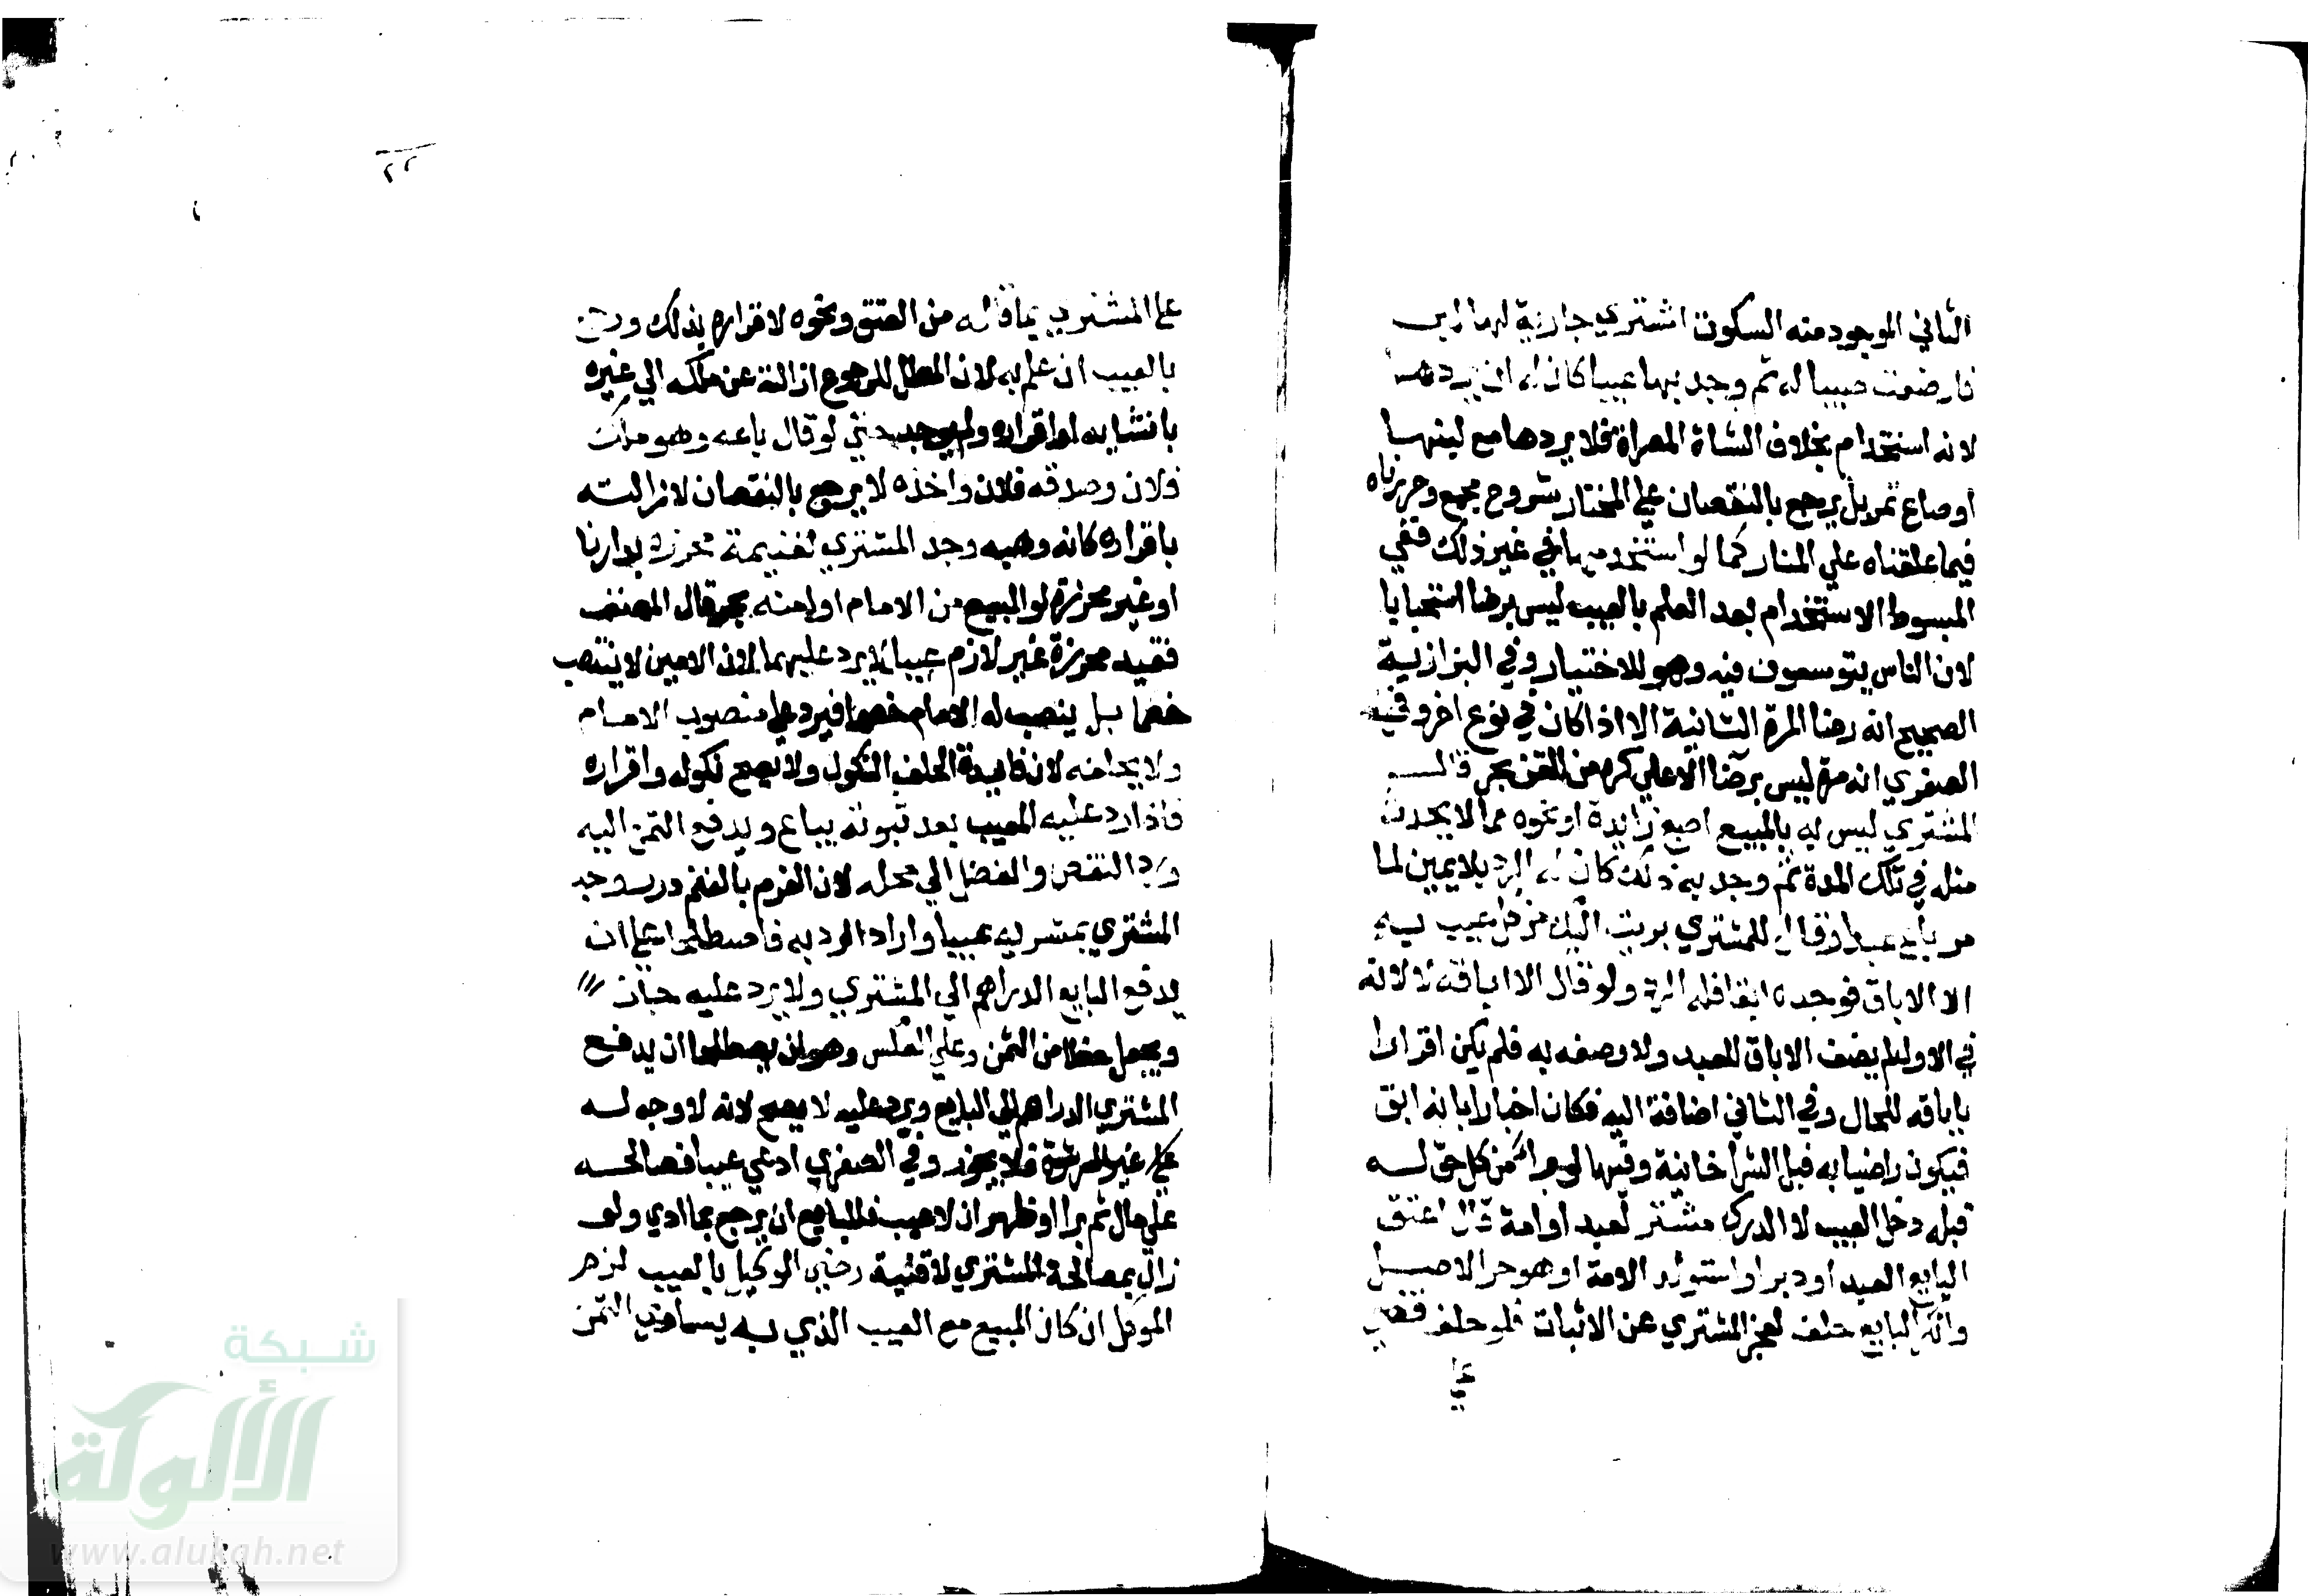 الثاني الموجود منه السكوت اشتري جارية لها لبن
فارضعت صبيا له ثم وجد بها عيبا كان له ان يردها
لانه استخدام بخلاف الشاة المصراة فلا يردها مع لبنها
او صاع تمر بل يرجع بالنقصان علي المختار شروح مجمع وحررناه
فيما علقناه علي المنار كما لو استخدمها في غير ذلك ففي
المبسوط الاستخدام بعد العلم بالعيب ليس برضا استحبابا
لان الناس يتوسعون فيه وهو للاختبار وفي البزازية
الصحيح انه رضا المرة الثانية الا اذا كان في نوع اخر وفي
الصغري انه مرة ليس برضا الا علي كره من القن بحر قال
المشتري ليس به بالمبيع اصبع زايدة او نحوه مما لا يحدث
مثله في تلك المدة ثم وجد به ذلك كان له الرد بلا يمين لما
مر باع عبدا وقال للمشتري بريت اليك من كل عيب به
الا الاباق فوجده ابقا فله الرد ولو قال الا اباقه لا لانه
في الاول لم يضف الاباق للعبد ولا وصفه به فلم يكن اقرارا
باباقه للحال وفي الثاني اضافة اليه فكان اخبارا بانه ابق
فيكون راضيا به قبل الشرا خانية وفيها لو برا من كل حق له
قبله دخل العيب لا الدرك مشتر لعبد او امة قال اعتق
البايع العبد او دبر او استولد الامة او هو حر الاصل
وانكر البايع حلف لعجز المشتري عن الاثبات فلو حلف قضي
علي
٢٢
علي المشتري بما قاله من العتق ونحوه لاقراره بذلك ورجع
بالعيب ان علم به لان المبطل للرجوع ازالته عن ملكه الي غيره
بانشايه او اقراره ولم يوجد حتي لو قال باعه وهو ملك
فلان وصدقه فلان واخذه لا يرجع بالنقصان لازالته
باقراره كانه وهبه وجد المشتري لغنيمة محرزة بدارنا
او غير محرزة لو البيع من الامام او امينه بحر قال المصنف
فقيد محرزة غير لازم عيبا لا يرد عليهما لان الامين لا ينتصب
خصما بل ينصب له الامام خصما فيرد علي منصوب الامام
ولا يحلفه لان فايدة الحلف النكول ولا يصح نكوله واقراره
فاذا رد عليه المعيب بعد ثبوته يباع ويدفع الثمن اليه
ويرد النقص والفضل الي محله لان الغرم بالغنم درر وجد
المشتري بمشريه عيبا واراد الرد به فاصطلحا علي ان
يدفع البايع الدراهم الي المشتري ولا يرد عليه جاز
ويجعل حطا من الثمن وعلي العكس وهو ان يصطلحا ان يدفع
المشتري الدراهم الي البايع ويرد عليه لا يصح لانه لا وجه له
غير الرشوة فلا يجوز وفي الصغري ادعي عيبا فصالحه
علي مال ثم برا او ظهر ان لا عيب فللبايع ان يرجع بما ادي ولو
زال بمعالجة المشتري لا قنية رضي الوكيل بالعيب لزم
الموكل ان كان المبيع مع العيب الذي به يساوي الثمن
شبكة
الألوكة
www.alukah.net